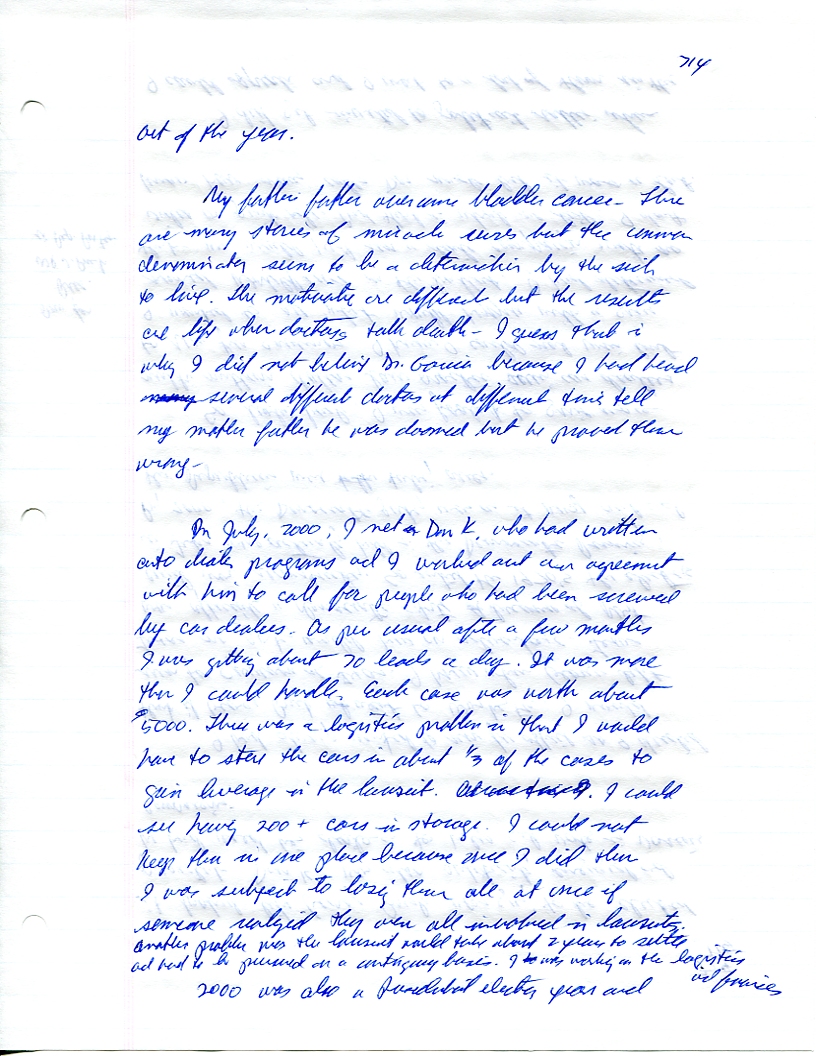 714
out of the year.
My father's father overcame bladder cancer - There
are many stories of miracle cures but the common
denominator seems to be a determination by the sick
to live. The motivate are different but the results
are life when doctors talk death - I guess that is
why I did not believe Dr. Garcia because I had heard
several different doctors at different times tell
my mother father he was doomed but he proved them
wrong -
In July, 2000, I met Don K. who had written
auto dealer programs and I worked out an agreement
with him to call for people who had been screwed
by car dealers. As per usual after a few months
I was getting about 20 leads a day. It was more
than I could handle. Each case was worth about
$5000. There was a logistics problem in that I would
have to store the cars in about 1/3 of the cases to
gain leverage in the lawsuit. I could
see having 200+ cars in storage. I could not
keep them in one place because once I did then
I was subject to losing them all at once if
someone realized they were all involved in lawsuits.
another problem was the lawsuit would take about 2 years to settle
and had to be pursued on a contingency basis. I was working on the logistics
and finances
2000 was also a Presidential election year and